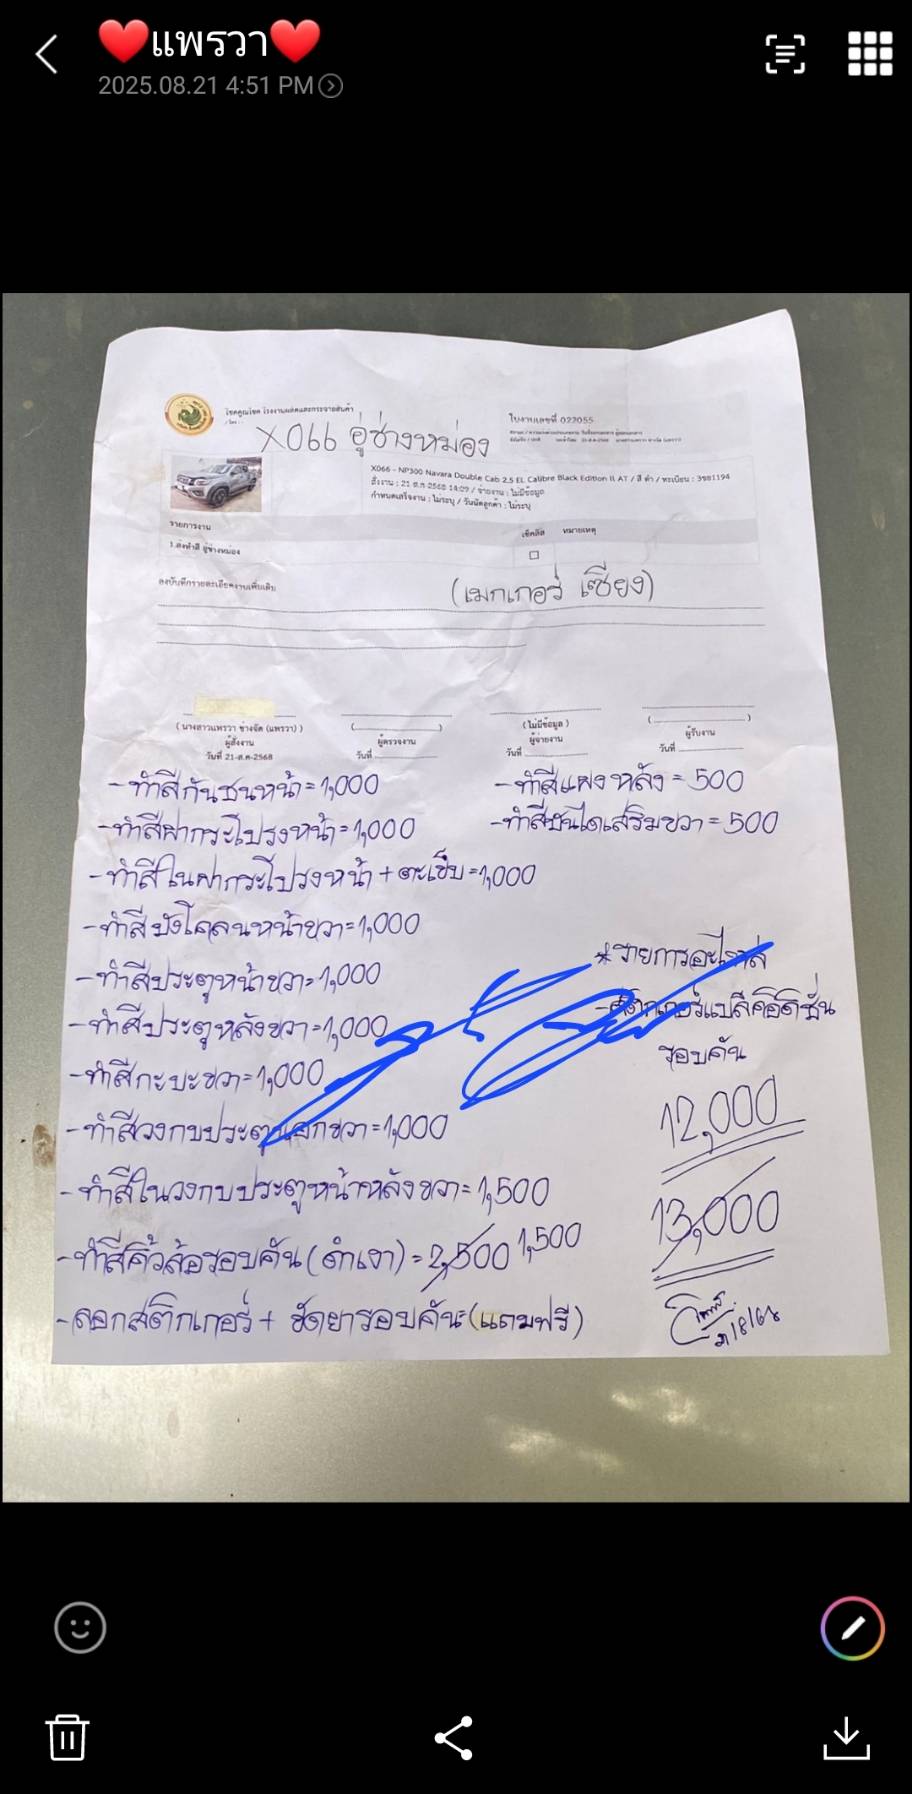 ❤️แพรวา❤️
2025.08.21 4:51 PM
โชคคูณโชค โรงงานผลิตและกระจายสินค้า
ใบงานเลขที่ 022055
X066 อู่ช่างหม่อง
X066 - NP300 Navara Double Cab 2.5 EL Calibre Black Edition II AT / สี ดำ / ทะเบียน : 3ขข1194
สั่งงาน : 21 ส.ค 2568 14:09 / จ่ายงาน : ไม่มีข้อมูล
กำหนดเสร็จงาน : ไม่ระบุ / วันนัดลูกค้า : ไม่ระบุ
รายการงาน เช็คลิส หมายเหตุ
1.ส่งทำสี อู่ช่างหม่อง
ลงบันทึกรายละเอียดงานเพิ่มเติม
(เมกเกอร์ เซียง)
( นางสาวแพรวา ช่างจัด (แพรวา) ) (ไม่มีข้อมูล )
ผู้สั่งงาน ผู้ตรวจงาน ผู้จ่ายงาน ผู้รับงาน
วันที่ 21-ส.ค-2568 วันที่ วันที่ วันที่
-ทำสีกันชนหน้า=1,000
-ทำสีแผงหลัง=500
-ทำสีฝากระโปรงหน้า=1,000
-ทำสีบันไดเสริมขวา=500
-ทำสีในฝากระโปรงหน้า+ตะเข็บ=1,000
-ทำสีบังโคลนหน้าขวา=1,000
-ทำสีประตูหน้าขวา=1,000
-ทำสีประตูหลังขวา=1,000
-ทำสีกะบะขวา=1,000
-ทำสีวงกบประตูนอกขวา=1,000
-ทำสีในวงกบประตูหน้า+หลังขวา=1,500
-ทำสีคิ้วล้อรอบคัน(ดำเงา)=2,500 1,500
-ลอกสติกเกอร์+ขัดยารอบคัน=(แถมฟรี)
*รายการอะไหล่
-สติกเกอร์แบล็คอิดิชั่น
รอบคัน
12,000
13,000
21/8/68